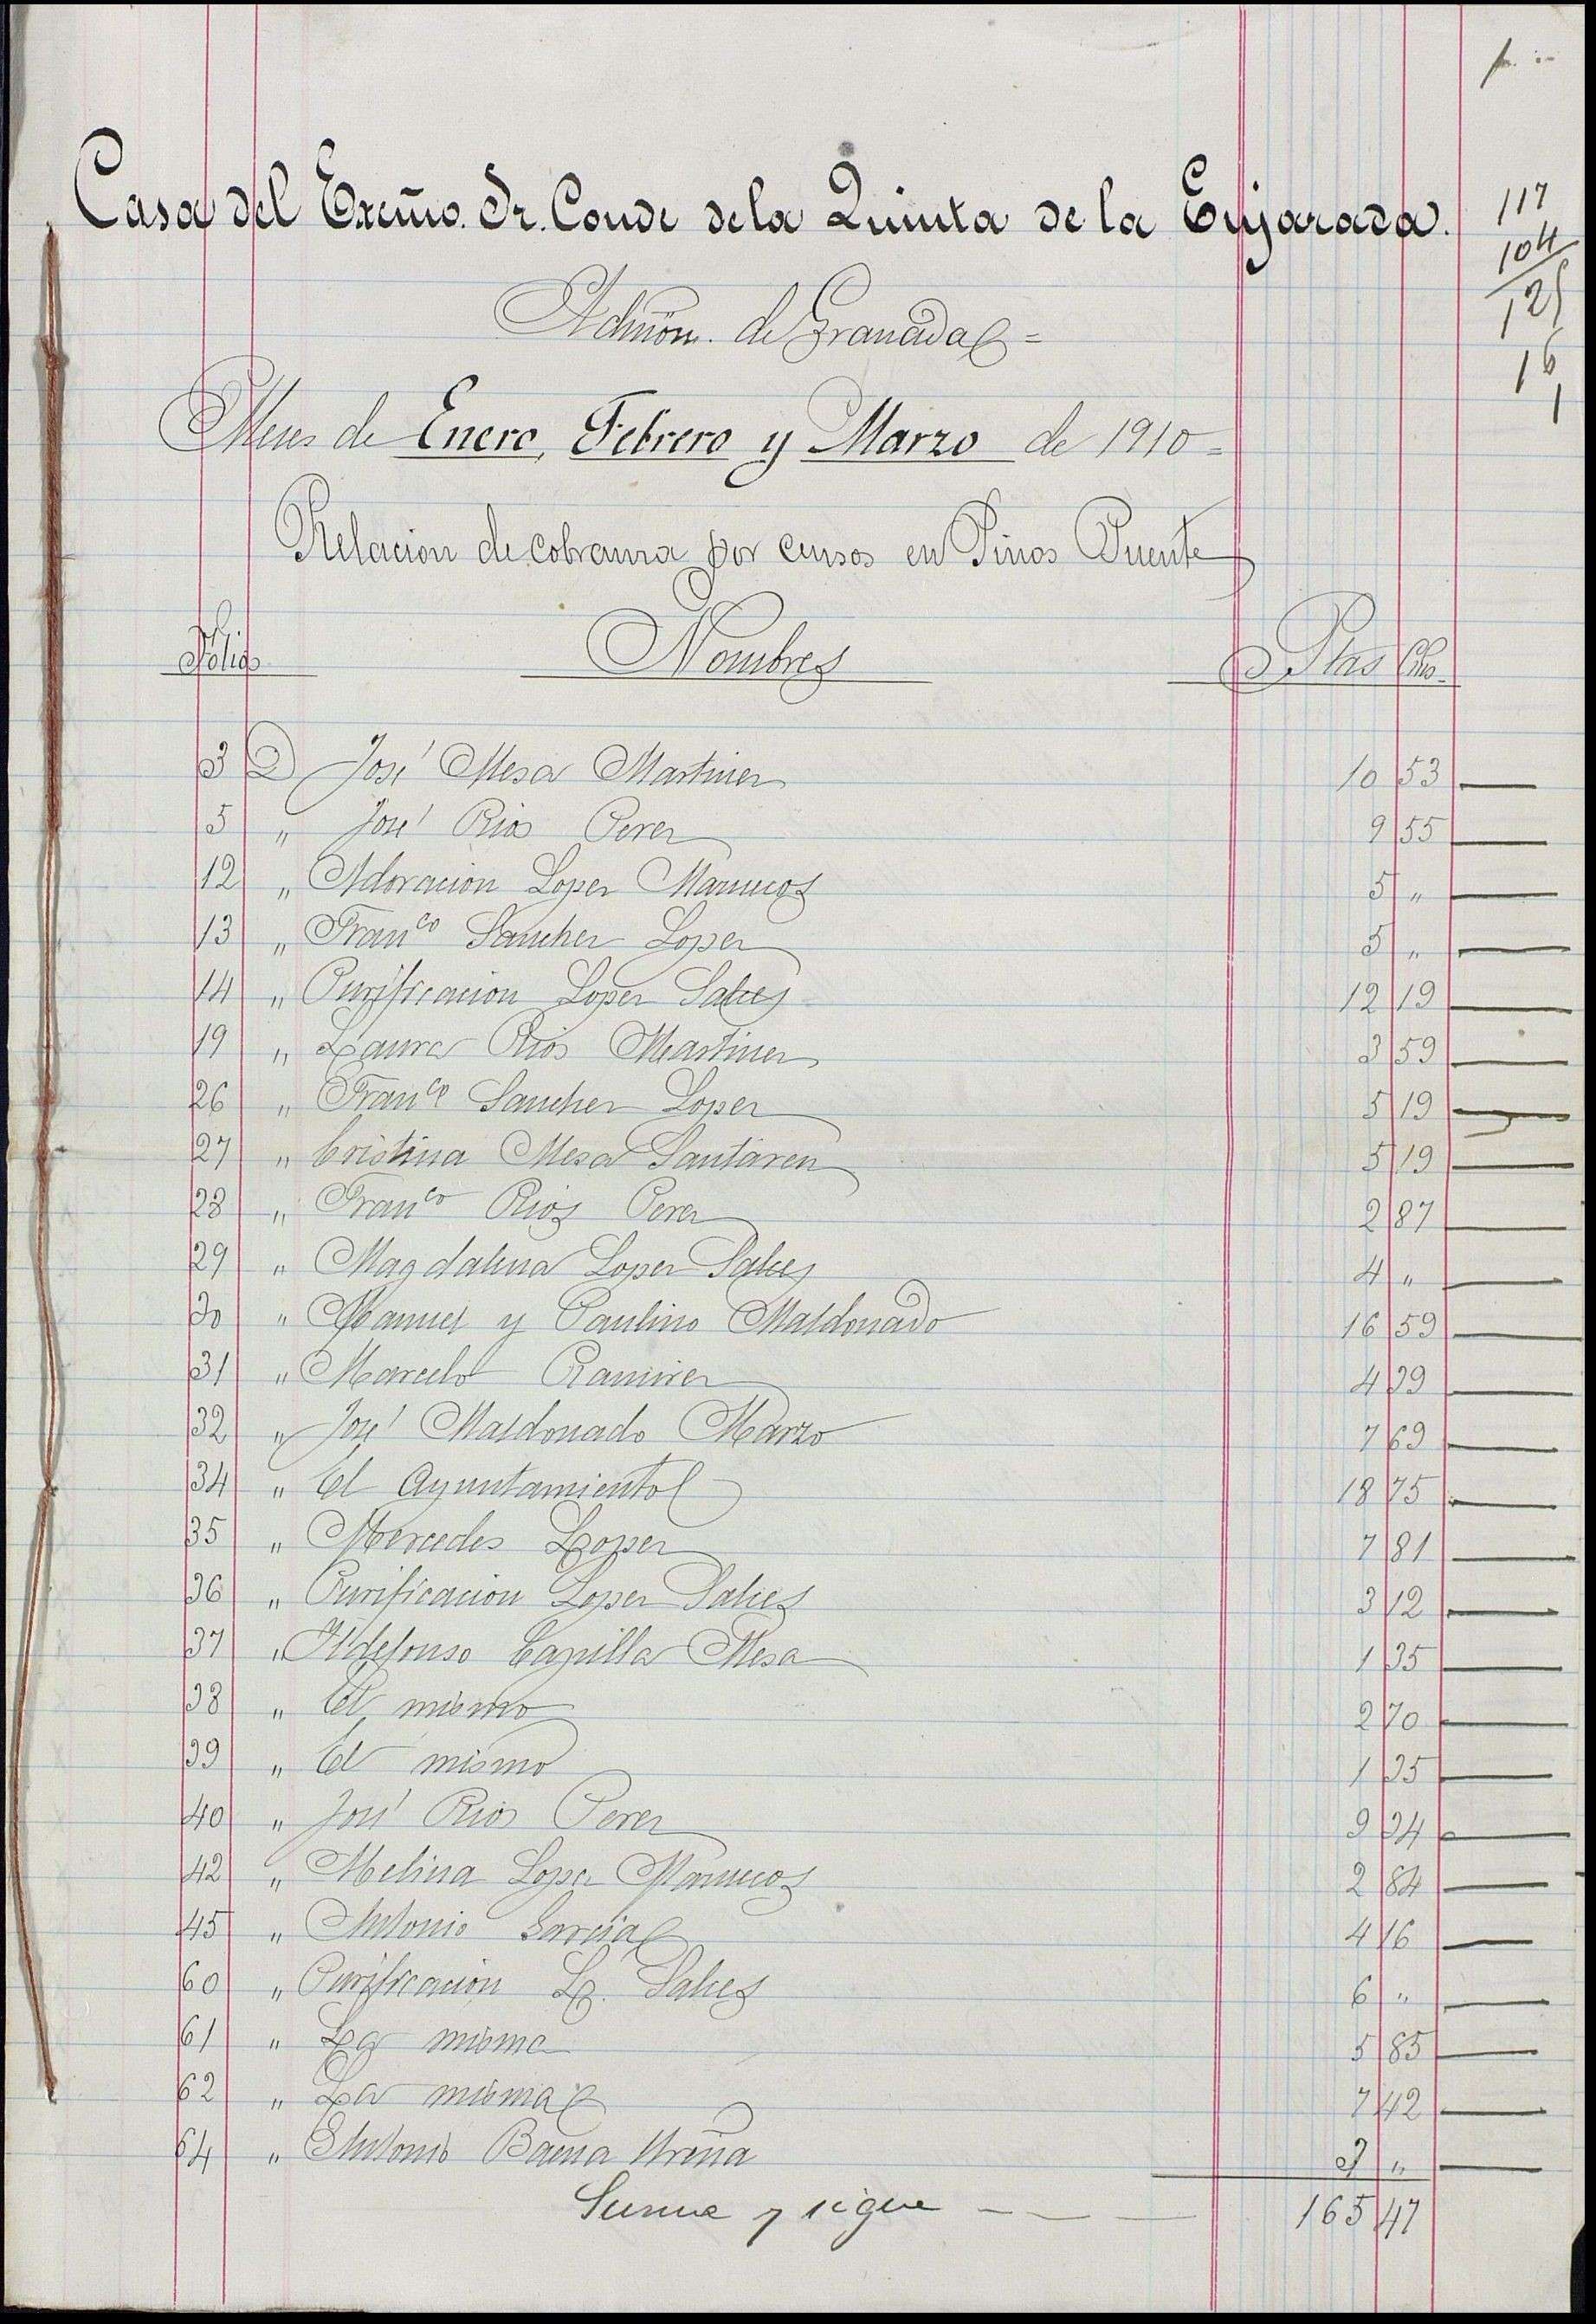 117
104
125
16
1
Casa del Excmo. Sr. Conde de la Quinta de la Enjarada.
Admón. de Granada =
Meses de Enero, Febrero y Marzo de 1910 =
Relacion de cobranza por censos en Pinos Puente
Folios Nombres Ptas Cts
3 D José Mesa Martinez 10 53
5 " José Rios Perez 9 55
12 " Adoracion Lopez Marruecos 5 "
13 " Franco Sanchez Lopez 5 "
14 " Purificacion Lopez Salces 12 19
19 " Laura Rios Martinez 3 59
26 " Franco Sanchez Lopez 5 19
27 " Cristina Mesa Santaren 5 19
28 " Franco Rios Perez 2 87
29 " Magdalena Lopez Salces 4 "
30 " Manuel y Paulino Maldonado 16 59
31 " Marcelo Ramirez 4 39
32 " José Maldonado Marzo 7 69
34 " El Ayuntamiento 18 75
35 " Mercedes Lopez 7 81
36 " Purificacion Lopez Salces 3 12
37 " Ildefonso Capilla Mesa 1 35
38 " El mismo 2 70
39 " El mismo 1 35
40 " José Rios Perez 9 34
42 " Melina Lopez Marruecos 2 84
45 " Antonio Garcia 4 16
60 " Purificacion L. Salces 6 "
61 " La misma 5 85
62 " La misma 7 42
64 " Antonio Baena Ureña 3 "
Suma y sigue 165 47